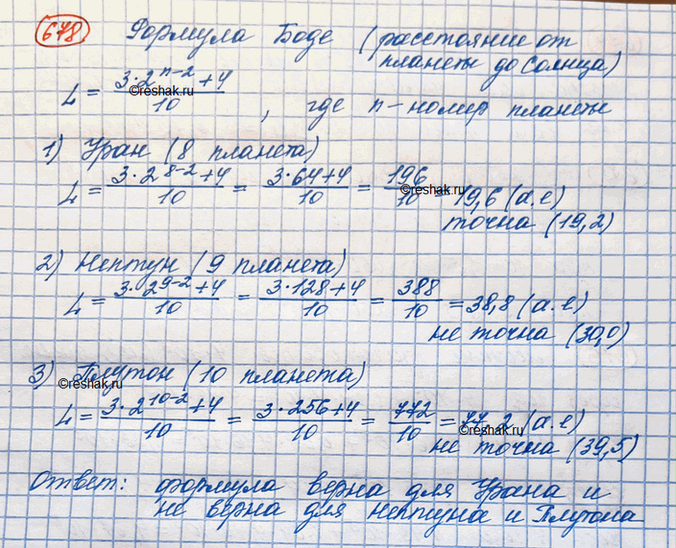 678 Формула Боде (расстояние от
планеты до Солнца)
L = (3·2^(n-2) + 4)/10 , где n - номер планеты
©reshak.ru
1) Уран (8 планета)
L = (3·2^(8-2) + 4)/10 = (3·64+4)/10 = 196/10 = 19,6 (а.е)
©reshak.ru
точна (19,2)
2) Нептун (9 планета)
L = (3·2^(9-2) + 4)/10 = (3·128+4)/10 = 388/10 = 38,8 (а.е)
не точна (30,0)
3) Плутон (10 планета)
©reshak.ru
L = (3·2^(10-2) + 4)/10 = (3·256+4)/10 = 772/10 = 77,2 (а.е)
©reshak.ru
не точна (39,5)
Ответ: формула верна для Урана и
не верна для Нептуна и Плутона